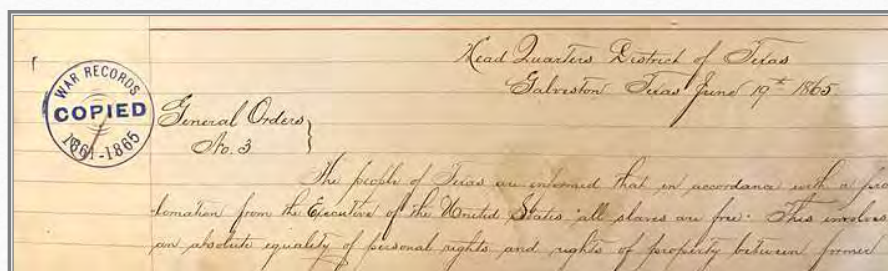 Head Quarters District of Texas
Galveston Texas June 19th 1865.
WAR RECORDS
COPIED
1861-1865
General Orders
No. 3
The people of Texas are informed that in accordance with a pro
lamation from the Executive of the United States "all slaves are free." This involves
an absolute equality of personal rights and rights of property between former